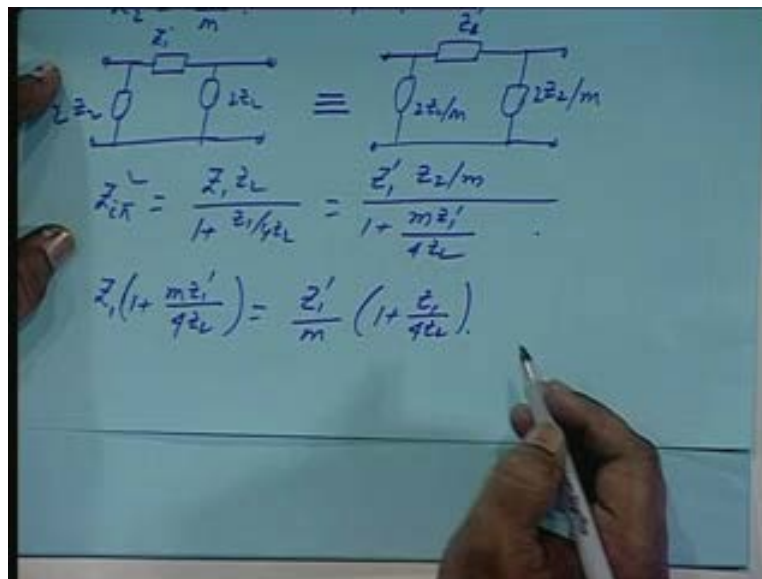 m
Z₁
2Z₂ 2Z₂ ≡ 2Z₂/m 2Z₂/m
Z²iπ = Z₁ Z₂ / (1 + Z₁/4Z₂) = Z₁' Z₂/m / (1 + mZ₁'/4Z₂) .
Z₁(1 + mZ₁'/4Z₂) = Z₁'/m (1 + Z₁/4Z₂).